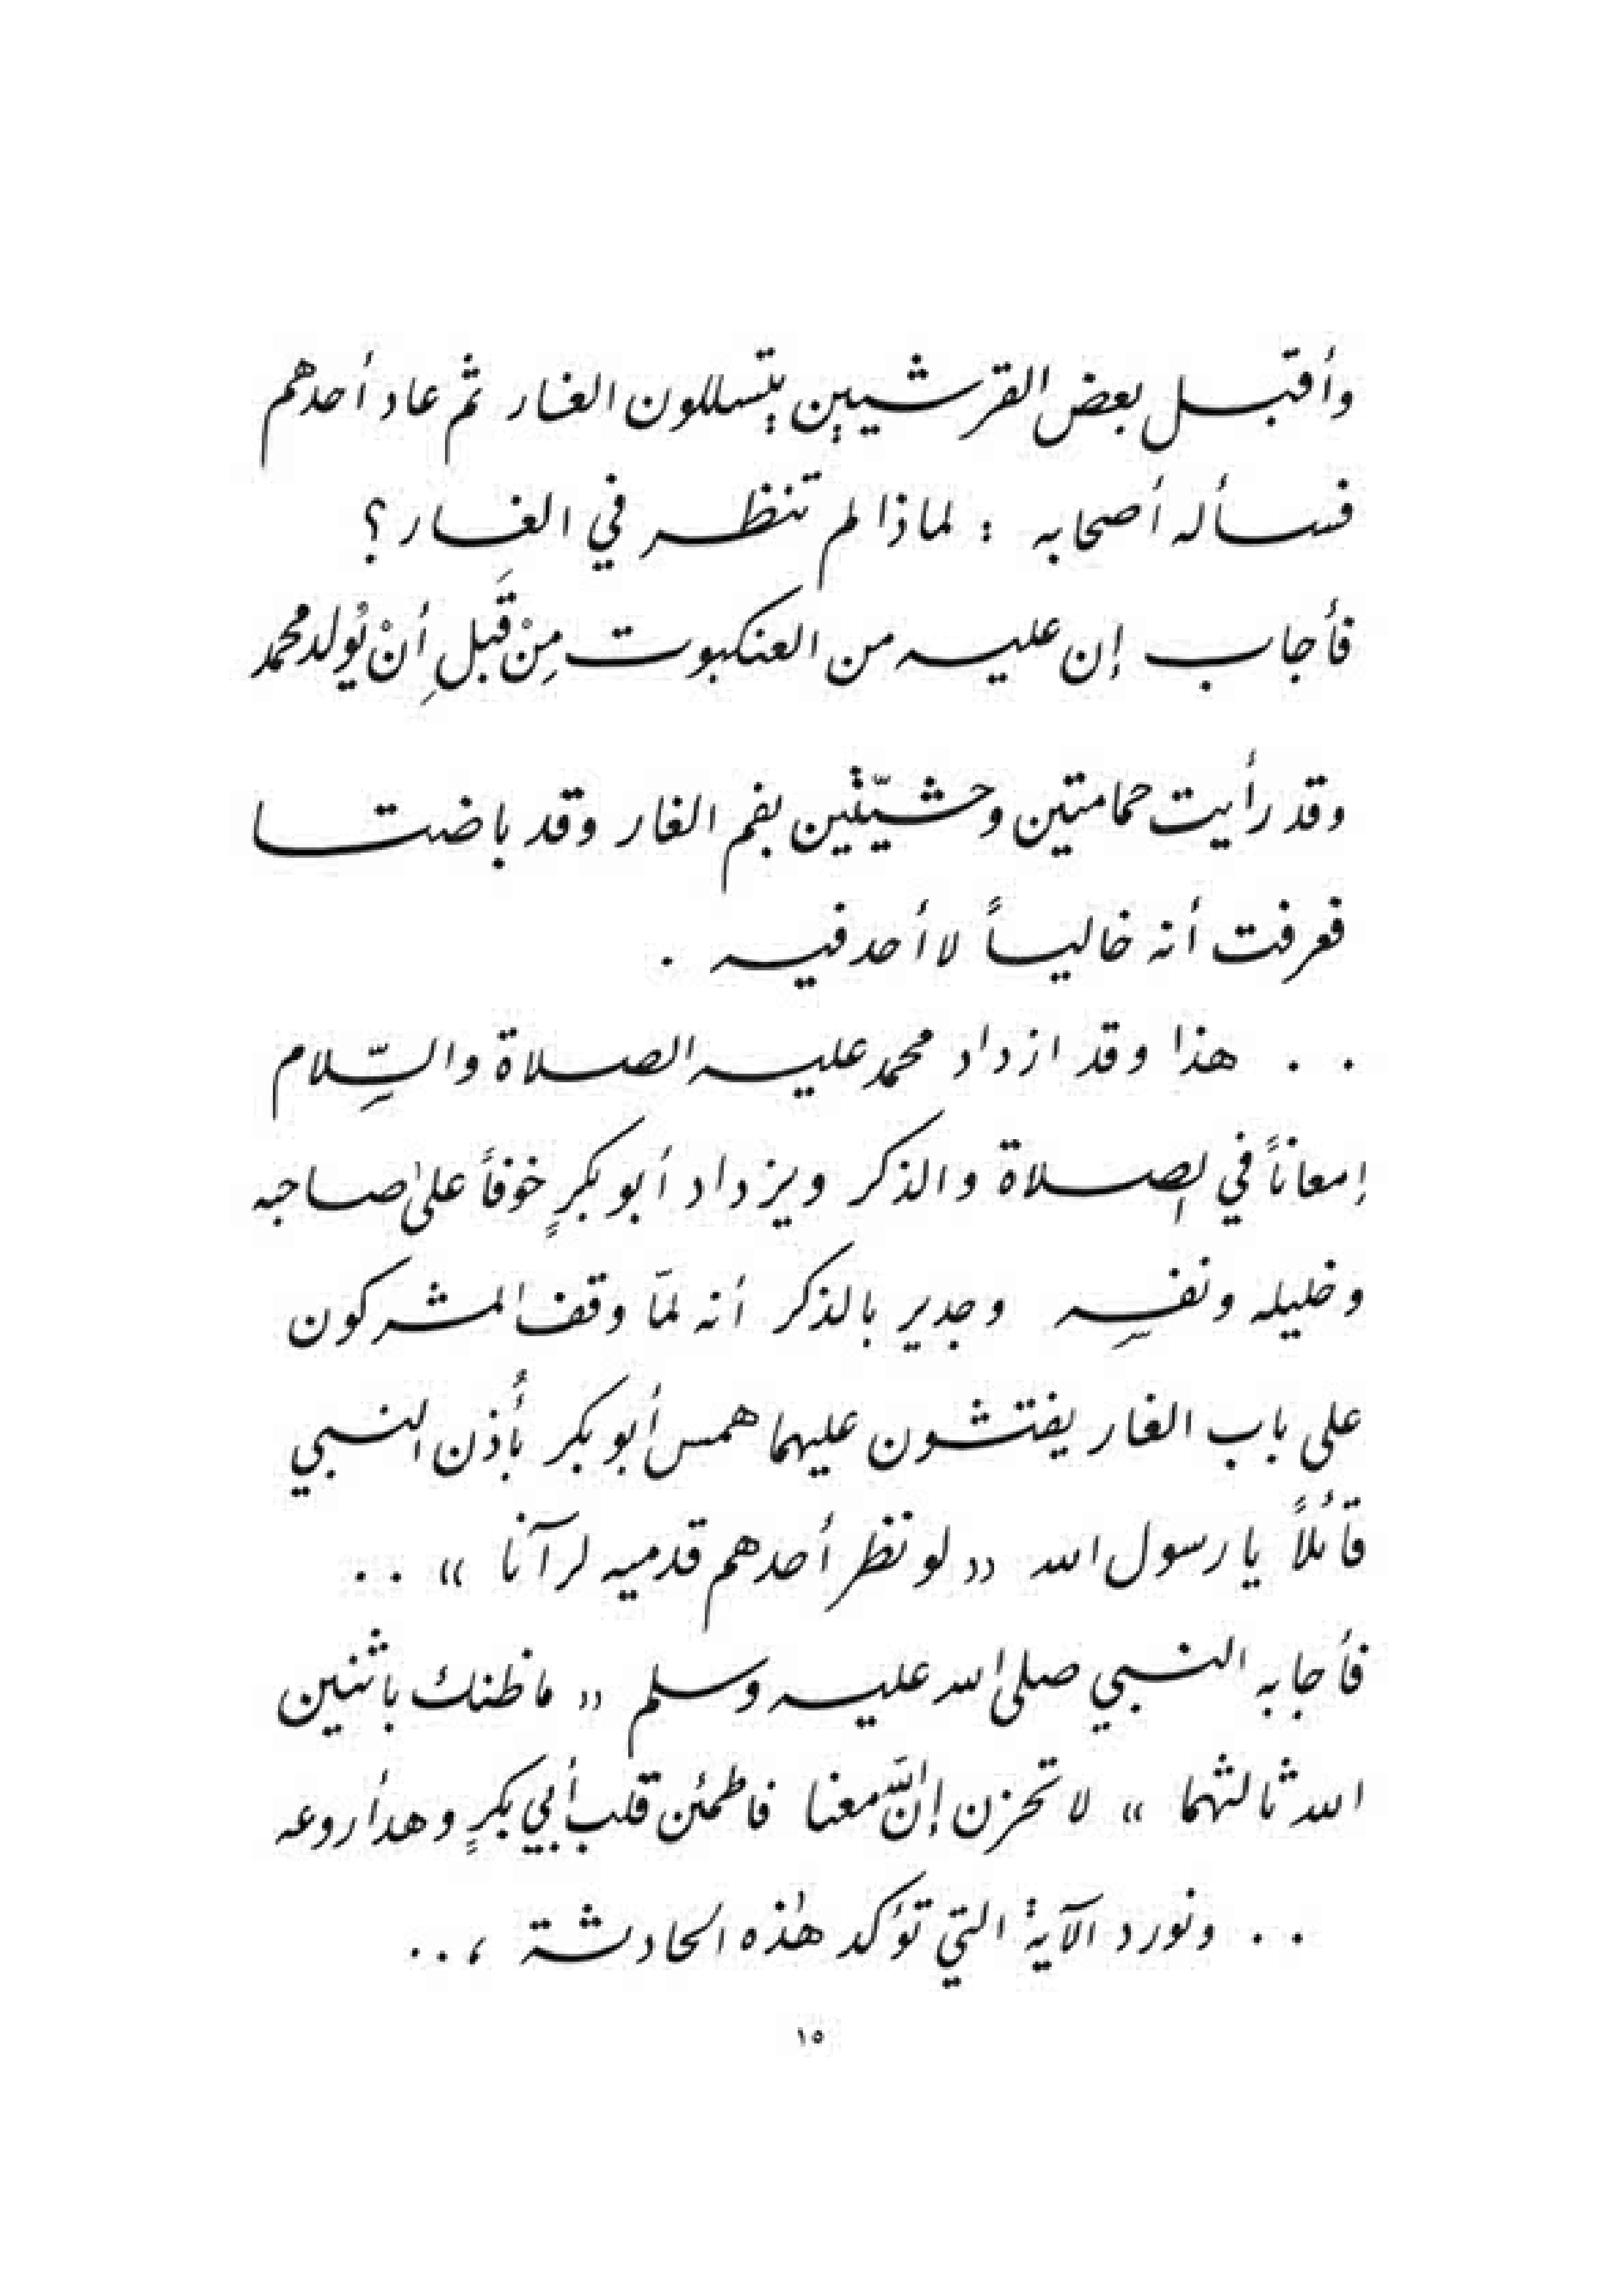 وأقبل بعض القرشيين يتسللون الغار ثم عاد أحدهم
فسأله أصحابه : لماذا لم تنظر في الغار ؟
فأجاب إن عليه من العنكبوت مِنْ قَبلِ أنْ يُولد محمد
وقد رأيت حمامتين وحشيّتين بفم الغار وقد باضتا
فعرفت أنه خالياً لا أحد فيه .
. . هذا وقد ازداد محمد عليه الصلاة والسّلام
إمعاناً في الصلاة والذكر ويزداد أبو بكرٍ خوفاً على صاحبه
وخليله ونفسِه وجدير بالذكر أنه لمّا وقف المشركون
على باب الغار يفتشون عليهما همس أبو بكر بأُذن النبي
قائلاً يا رسول الله « لو نظر أحدهم قدميه لرآنا » . .
فأجابه النبي صلى الله عليه وسلم « ما ظنك باثنين
الله ثالثهما » لا تحزن إن الله معنا فاطمئن قلب أبي بكرٍ وهدأ روعه
. . ونورد الآية التي تؤكد هذه الحادثة ، . .
١٥